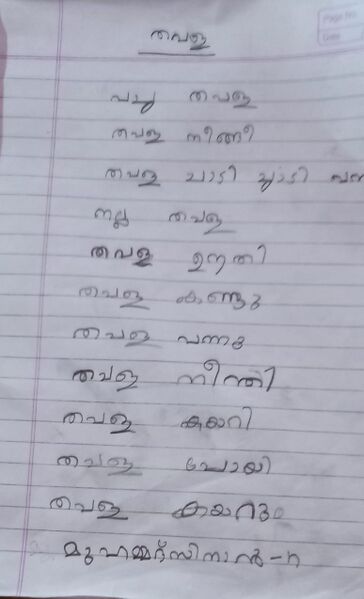 Page No
Date
തവള
പച്ച തവള
തവള നീങ്ങി
തവള ചാടി ചാടി വന
നല്ല തവള
തവള ഊതി
തവള കണ്ടു
തവള വന്നു
തവള നീന്തി
തവള കയറി
തവള പോയി
തവള കയറും
മുഹമ്മദ്സിനാൻ-n